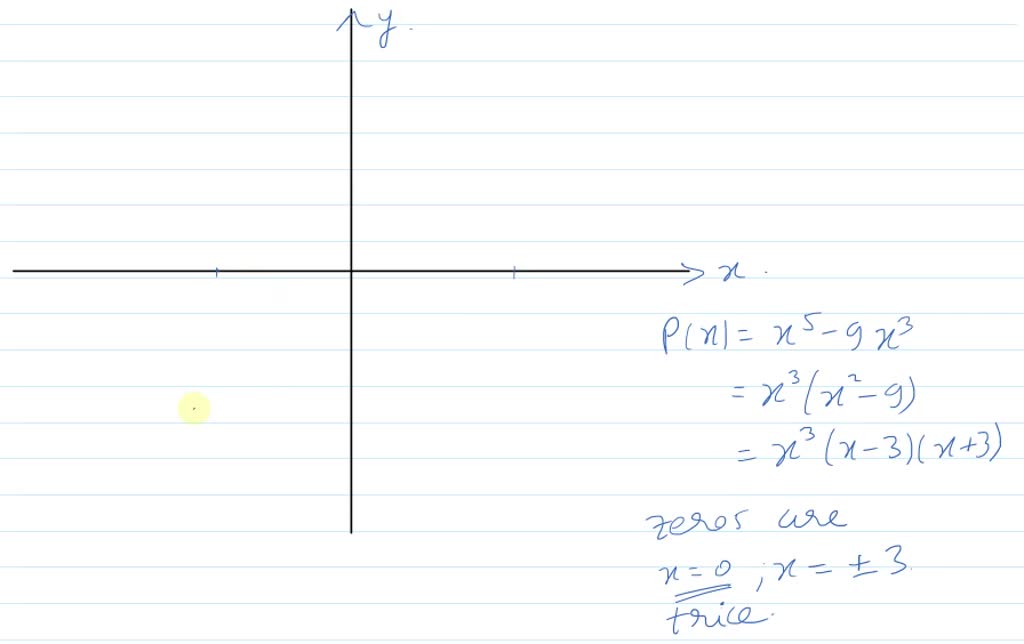 y.
x.
P(x) = x⁵ - 9x³
= x³(x² - 9)
= x³(x-3)(x+3)
zeros are
x = 0 ; x = ± 3.
trice.